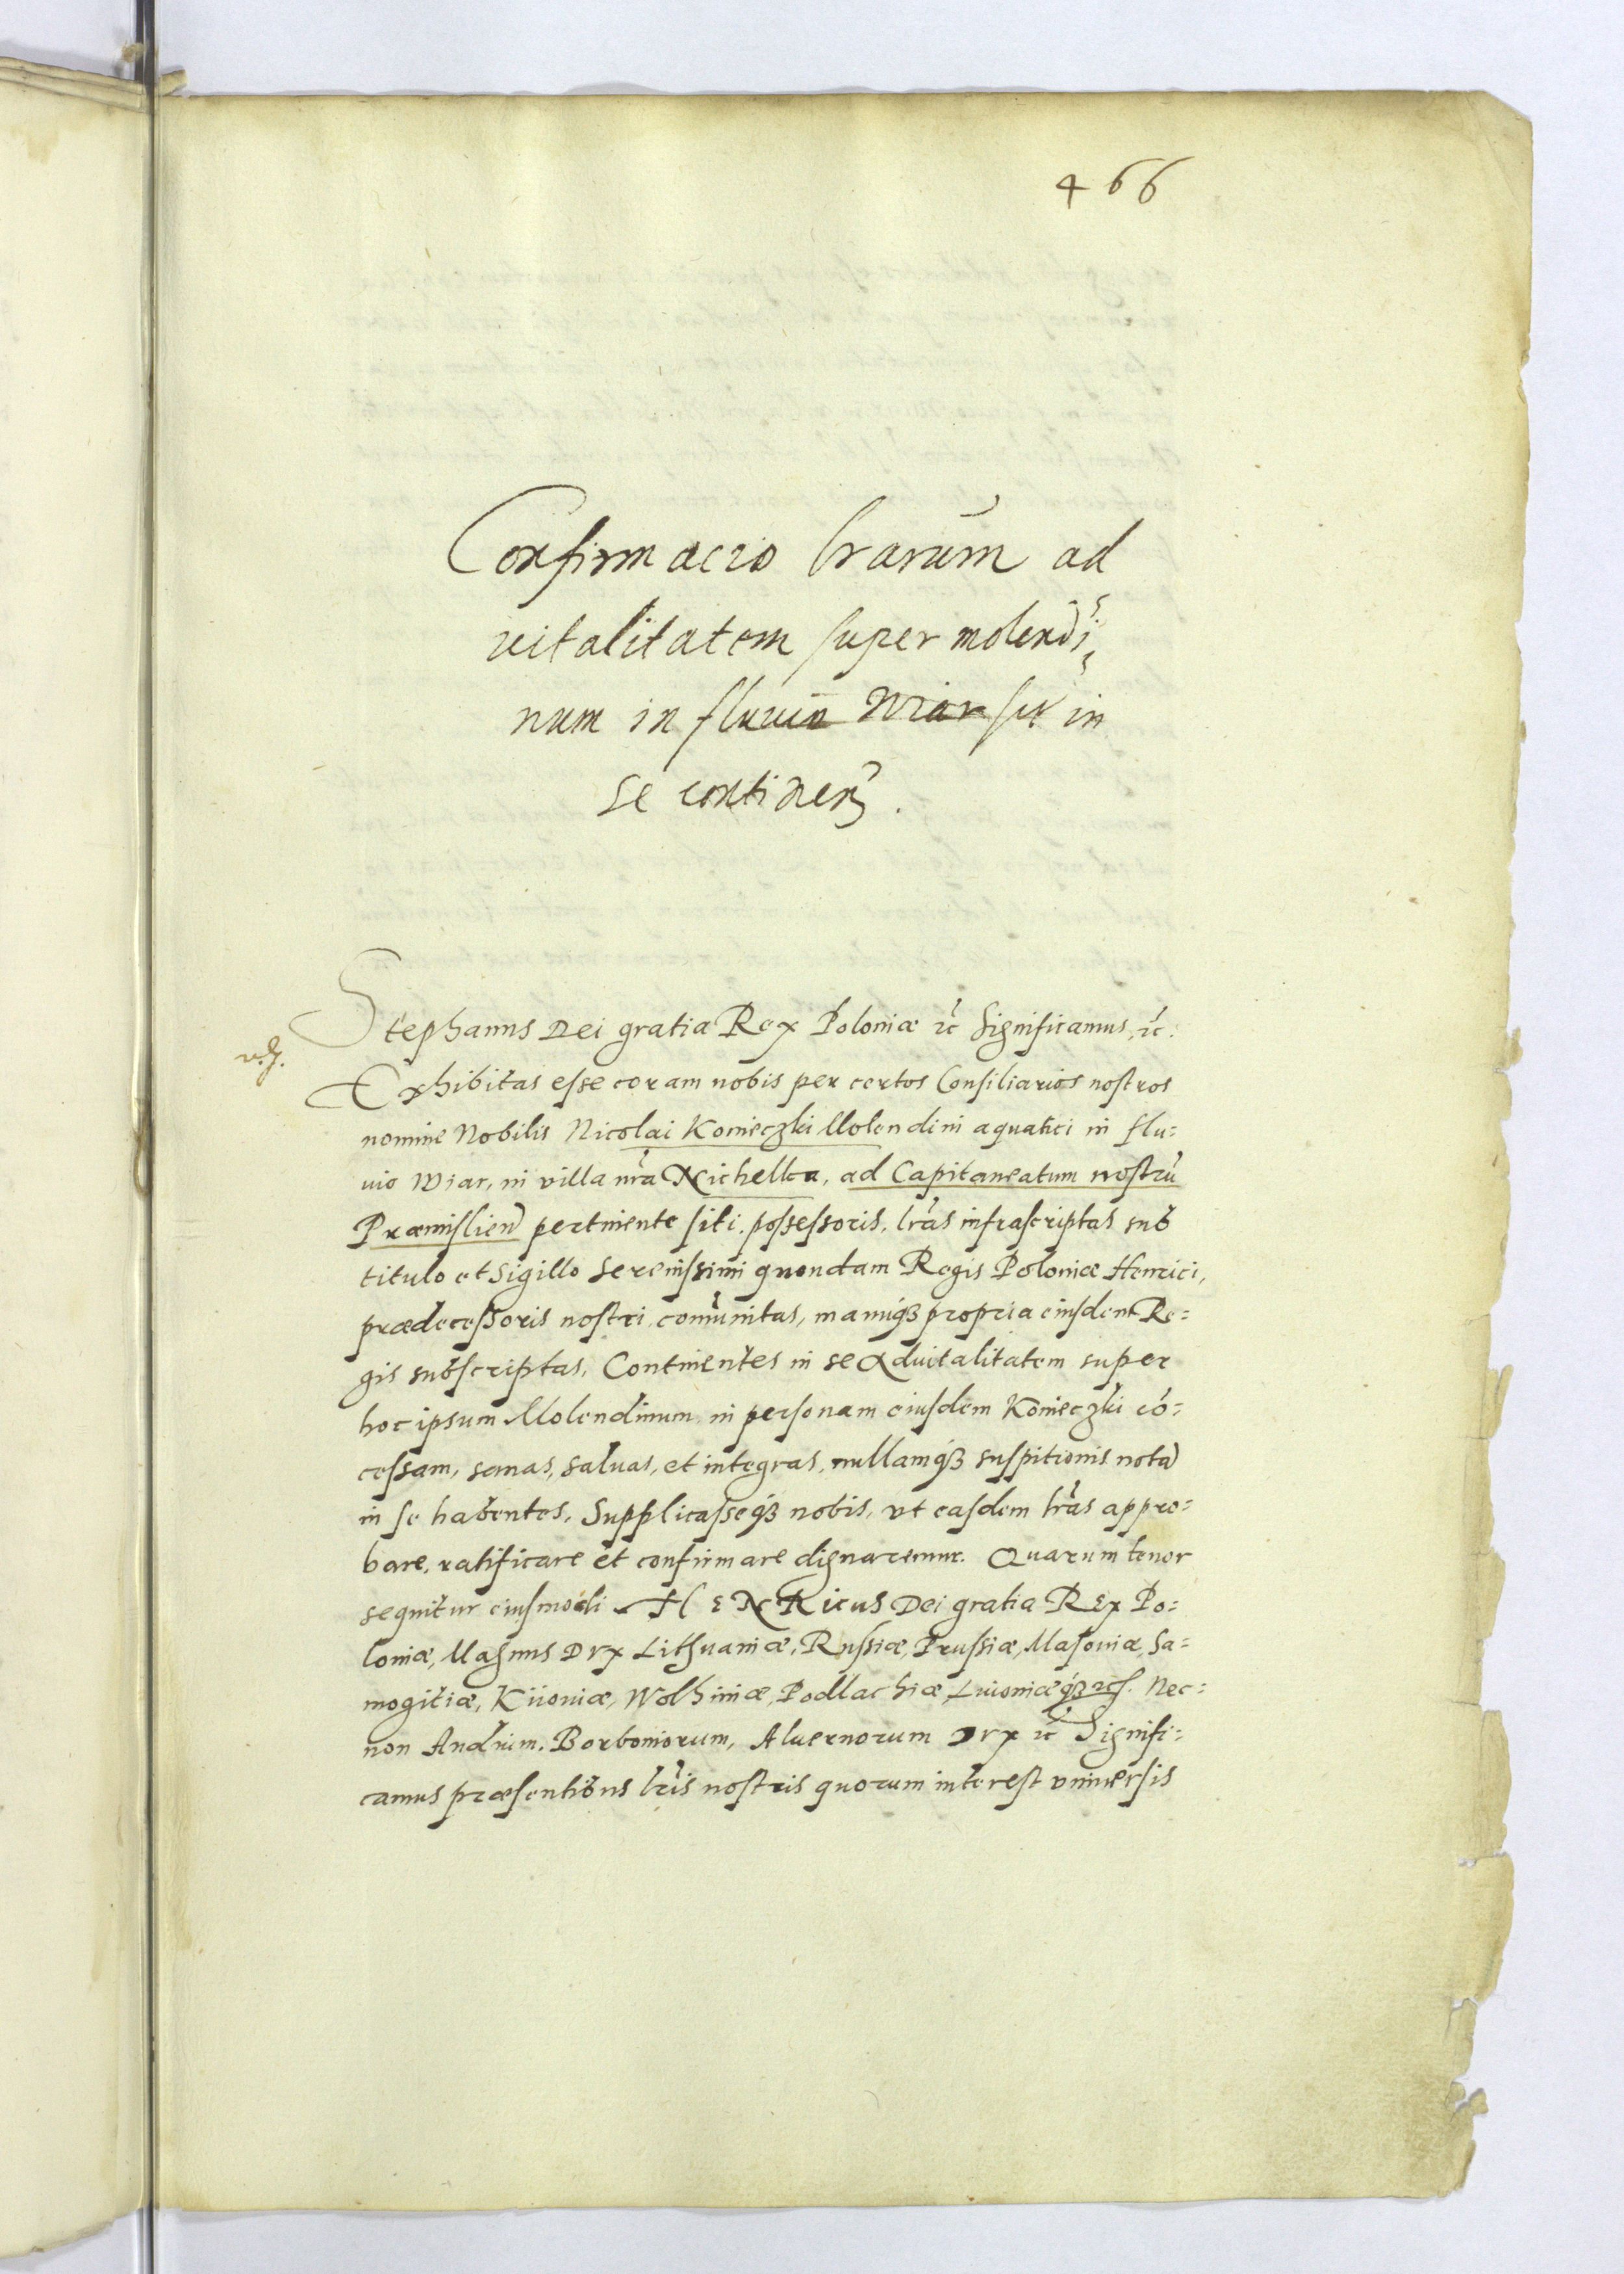 466
Confirmacio lrarum ad
vitalitatem super molendi
num in fluvio Wiar in
se continen.
Stephanus Dei gratia Rex Poloniæ etc Significamus, etc.
Exhibitas esse coram nobis per certos Consiliarios nostros
nomine Nobilis Nicolai Konieczki Molendini aquatici in flu=
uio Wiar, in villa nra Nichelka, ad Capitaneatum nostrũ
Præmislien pertinente siti possessoris, lras infrascriptas sub
titulo et Sigillo Serenissimi quondam Regis Poloniæ Henrici,
prædecessoris nostri comunitas, manuq3 propria eiusdem Re=
gis subscriptas, Continentes in se aduitalitatem super
hoc ipsum Molendinum in personam eiusdem Konieczki cō=
cessam, sanas, saluas, et integras, nullamq3 suspitionis notã
in se habentes, Supplicasseq3 nobis, vt easdem lras appro=
bare, ratificare et confirmare dignaremur. Quarum tenor
sequitur eiusmodi HENRicus Dei gratia REx Po=
loniæ, Magnus Dvx Lithuaniæ, Russiæ, Prussiæ, Masouiæ, Sa=
mogitiæ, Kiiouiæ, Wolhiniæ, Podlachiæ, Liuoniæq3 Nec=
non Andium, Borboniorum, Aluernorum Dvx etc Signifi=
camus præsentibus lris nostris quorum interest vniuersis